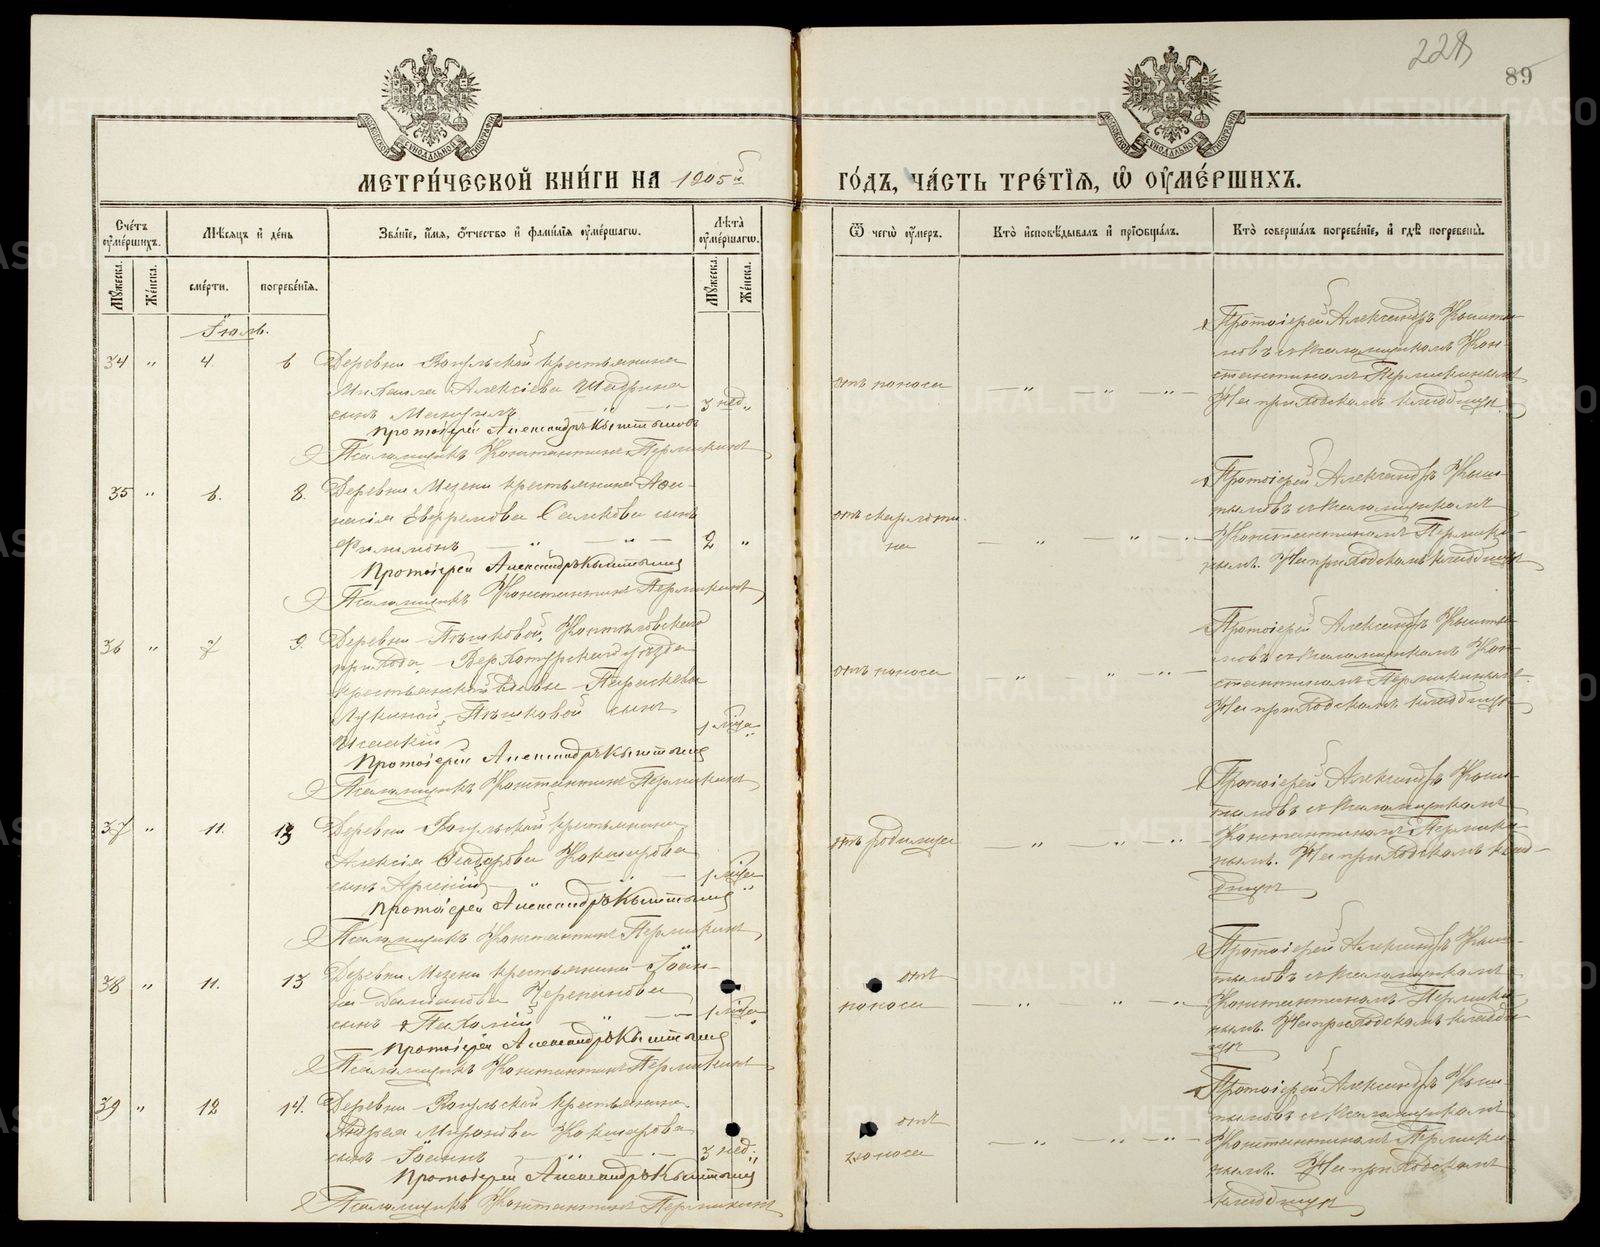 228
89
МЕТРИ́ЧЕСКОЙ КНИ́ГИ НА 1905й ГО́ДЪ, ЧА́СТЬ ТРЕ́ТІѦ, Ѿ ОУМЕ́РШИХЪ.
Сче́тъ оуме́ршихъ.
Мѣсяцъ и де́нь
Зва́ніе, и́мя, о́тчество и фами́лія оуме́ршагѡ.
Лѣта оуме́ршагѡ.
Ѿ чегѡ̀ оу́меръ.
Кто̀ и҆сповѣ́дывалъ и҆ прїѡбща́лъ.
Кто̀ соверша́лъ погребе́нїе, и҆ гдѣ̀ погребены̀.
Мꙋ́жеска.
Же́нска.
сме́рти.
погребе́нїя.
Мꙋ́жеска.
Же́нска.
Іюль.
34 " 4. 6
Деревни Рагульской крестьянина
Михаила Алексіева Шадрина
сынъ Мануилъ 3 нед.
Протоіерей Александръ Кыштымовъ
Псаломщикъ Константинъ Пермикинъ
отъ поноса
Протоіерей Александръ Кышты-
мовъ съ псаломщикомъ Кон-
стантиномъ Пермикинымъ
На приходскомъ кладбищѣ
35 " 6. 8.
Деревни Мезени крестьянина Аѳа-
насія Евфремова Салкова сынъ
Филимонъ 2 "
Протоіерей Александръ Кыштымовъ
Псаломщикъ Константинъ Пермикинъ
отъ скарлоти-
на
Протоіерей Александръ Кыш-
тымовъ съ псаломщикомъ
Константиномъ Пермики-
нымъ. На приходскомъ кладбищѣ
36 " 7 9.
Деревни Пѣшковой,
прихода Верхотурскаго уѣзда
крестьянской вдовы Параскевы
Лукиной Пѣшковой сынъ
Исаакій 1 мѣца
Протоіерей Александръ Кыштымовъ
Псаломщикъ Константинъ Пермикинъ
отъ поноса
Протоіерей Александръ Кышты-
мовъ съ псаломщикомъ Кон-
стантиномъ Пермикинымъ.
На приходскомъ кладбищѣ
37 " 11. 13
Деревни Рагульской крестьянина
Алексія Ѳеодорова Кокшарова
сынъ Арсеній 1 мѣца
Протоіерей Александръ Кыштымовъ
Псаломщикъ Константинъ Пермикинъ
отъ родимца
Протоіерей Александръ Кыш-
тымовъ съ псаломщикомъ
Константиномъ Пермики-
нымъ. На приходскомъ клад-
бищѣ
38 " 11. 13
Деревни Мезени крестьянина Іоан-
на Даміанова Черепанова
сынъ Пахомій 1 мѣца
Протоіерей Александръ Кыштымовъ
Псаломщикъ Константинъ Пермикинъ
отъ
поноса
Протоіерей Александръ Кыш-
тымовъ съ псаломщикомъ
Константиномъ Пермики-
нымъ. На приходскомъ кладби-
щѣ
39 " 12 14.
Деревни Рагульской крестьянина
Андрея Миронова Кокшарова
сынъ Іоаннъ 3 нед.
Протоіерей Александръ Кыштымовъ
Псаломщикъ Константинъ Пермикинъ
отъ
поноса
Протоіерей Александръ Кыш-
тымовъ съ псаломщикомъ
Константиномъ Пермики-
нымъ. На приходскомъ
кладбищѣ
METRIKI.GASO-URAL.RU